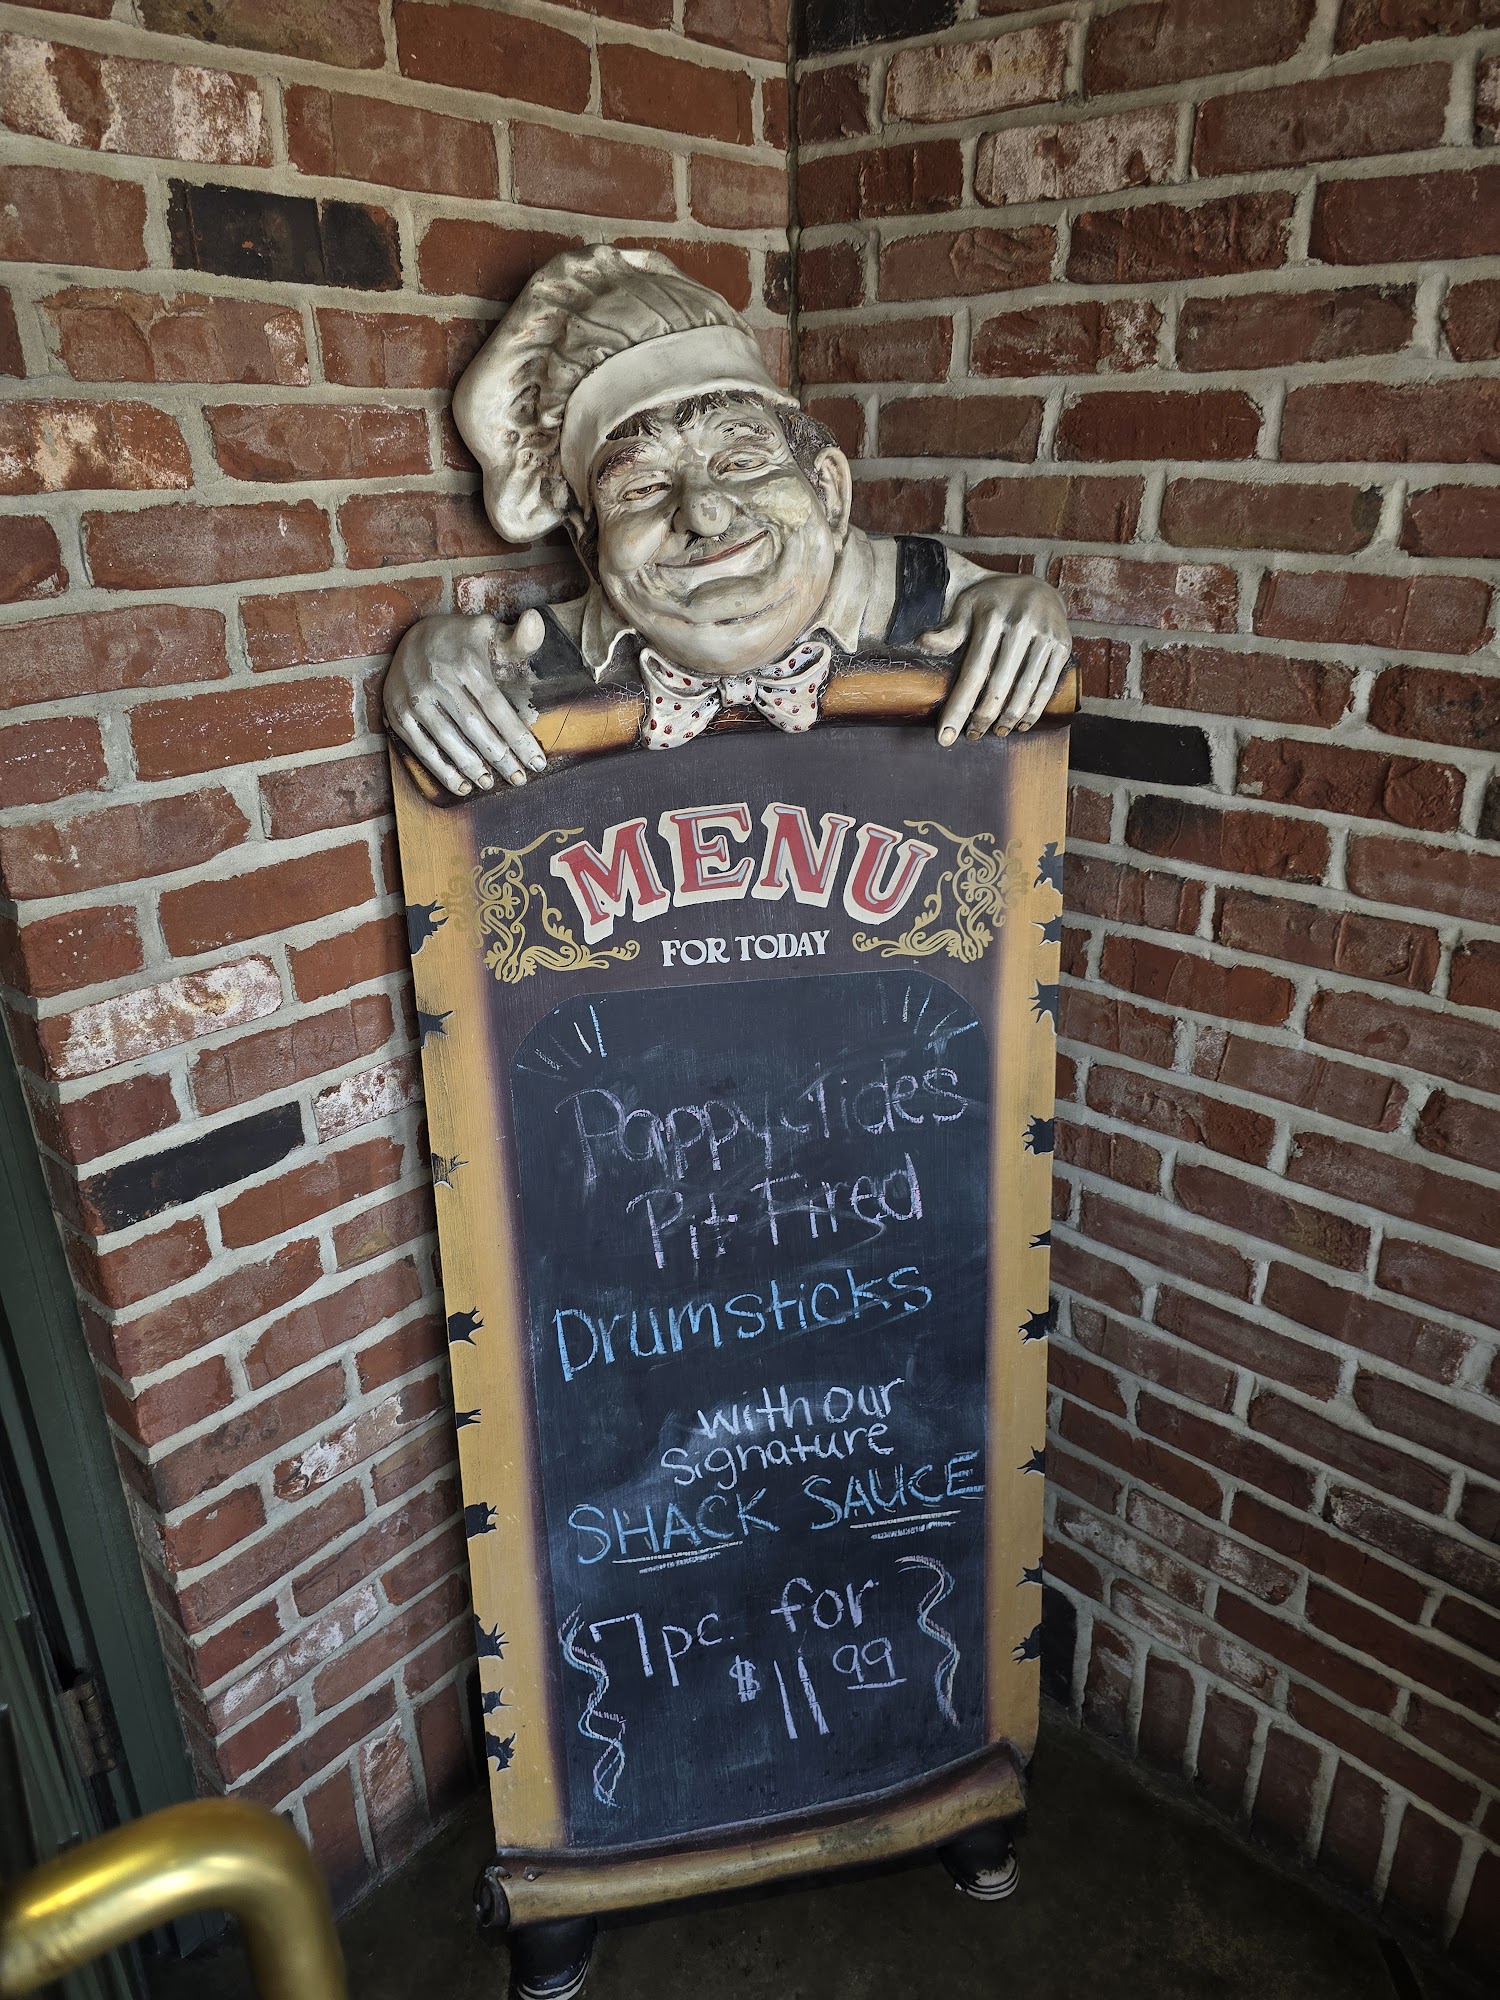 MENU
FOR TODAY
Pappy Tides
Pit Fired
Drumsticks
with our
signature
SHACK SAUCE
7pc. for
$11.99